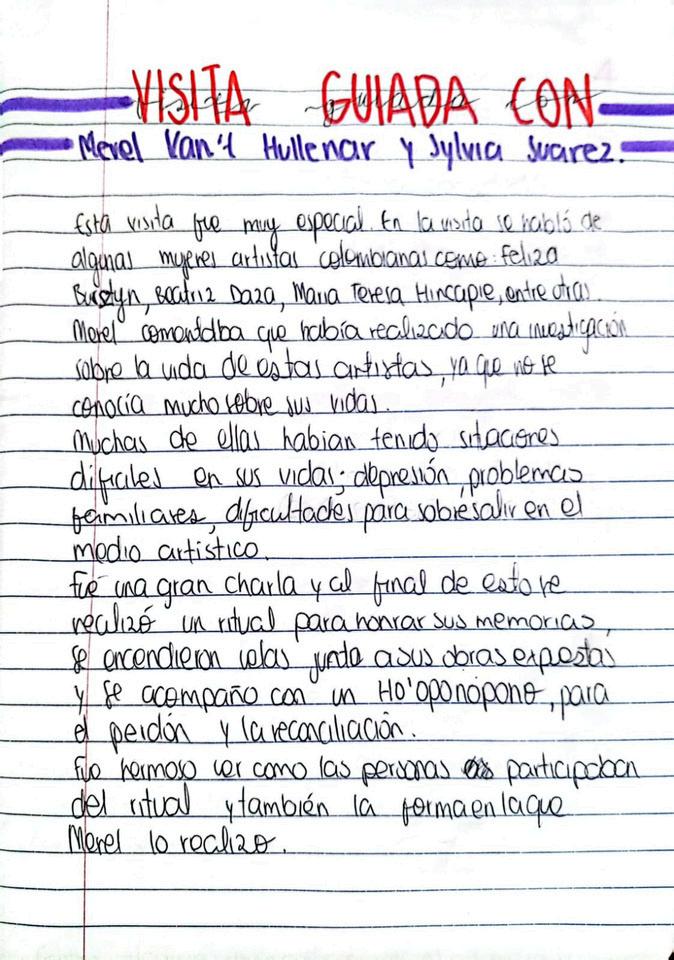 VISITA GUIADA CON
Merel Van't Hullenar y Sylvia Suarez.
Esta visita fue muy especial. En la visita se habló de
algunas mujeres artistas colombianas como: Feliza
Burztyn, Beatriz Daza, Maria Teresa Hincapie, entre otras.
Merel comentaba que había realizado una investigación
sobre la vida de estas artistas, ya que no se
conocía mucho sobre sus vidas.
Muchas de ellas habian tenido sitaciones
dificiles en sus vidas; depresión, problemas
familiares, dificultades para sobresalir en el
medio artístico.
Fué una gran charla y al final de esto se
realizó un ritual para honrar sus memorias,
se encendieron velas junto a sus obras expestas
y se acompaño con un Ho'oponopono, para
el perdón y la reconciliación.
Fue hermoso ver como las personas participaban
del ritual y también la forma en la que
Merel lo realizo.